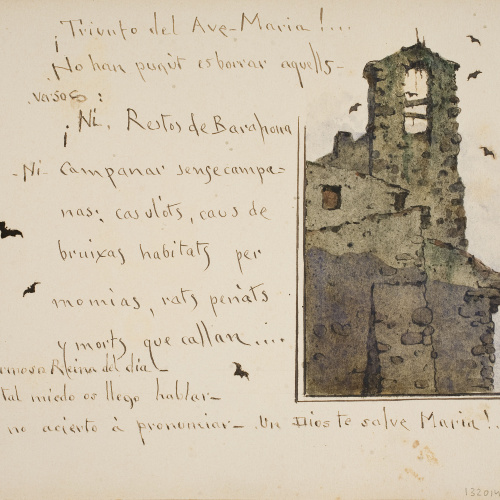 ¡Triunfo del Ave-Maria!...
No han pugut esborrar aquells-
vasos:
¡Ni. Restos de Barahona
-Ni- Campanar sense campa-
nas; casulóts, caus de
bruixas habitats per
momias, rats penats
y morts que callan....
ermosa Reina del dia
tal miedo os llego hablar-
no acierto à pronunciar- Un Dios te salve Maria!..